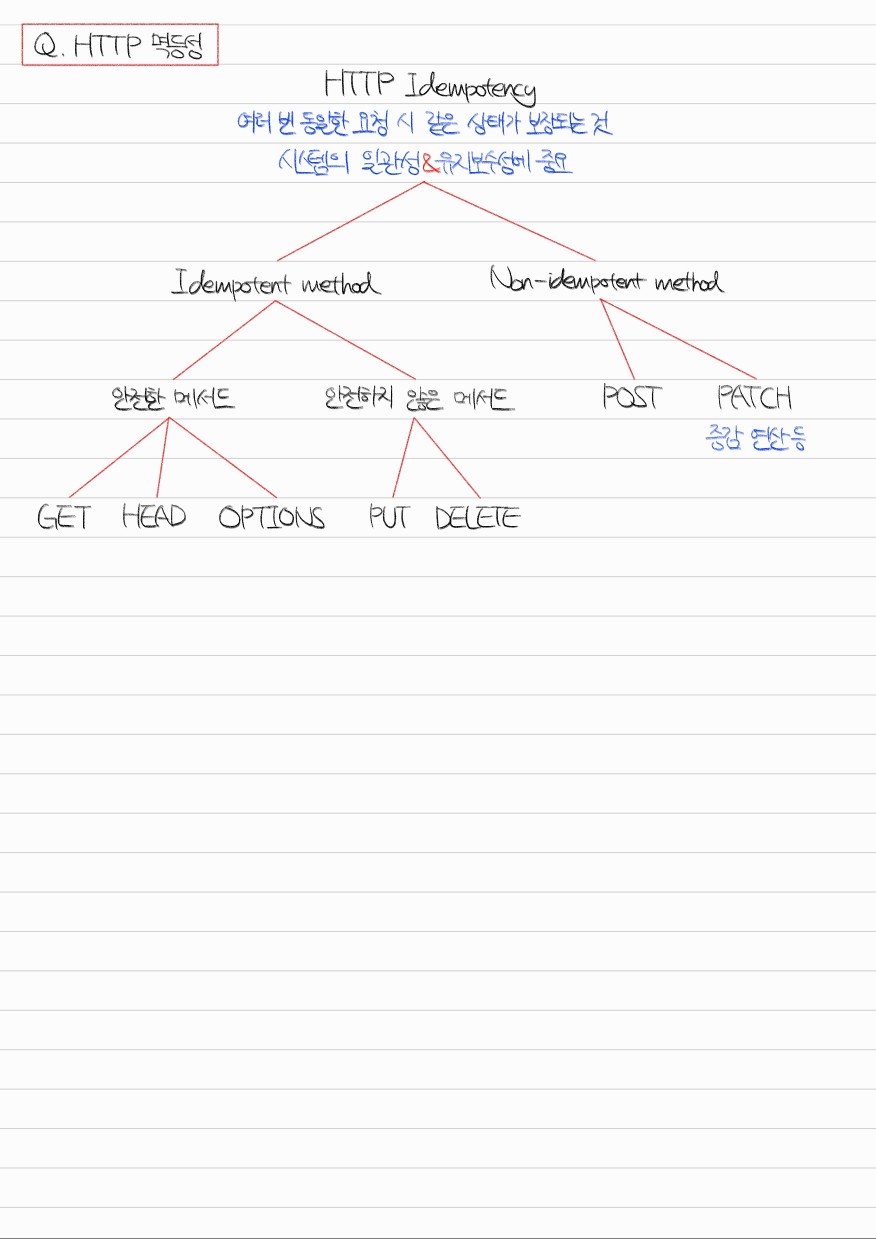 Q. HTTP 멱등성
HTTP Idempotency
여러 번 동일한 요청 시 같은 상태가 보장되는 것
시스템의 일관성&유지보수성에 중요
Idempotent method Non-idempotent method
안전한 메서드 안전하지 않은 메서드 POST PATCH
증감 연산 등
GET HEAD OPTIONS PUT DELETE